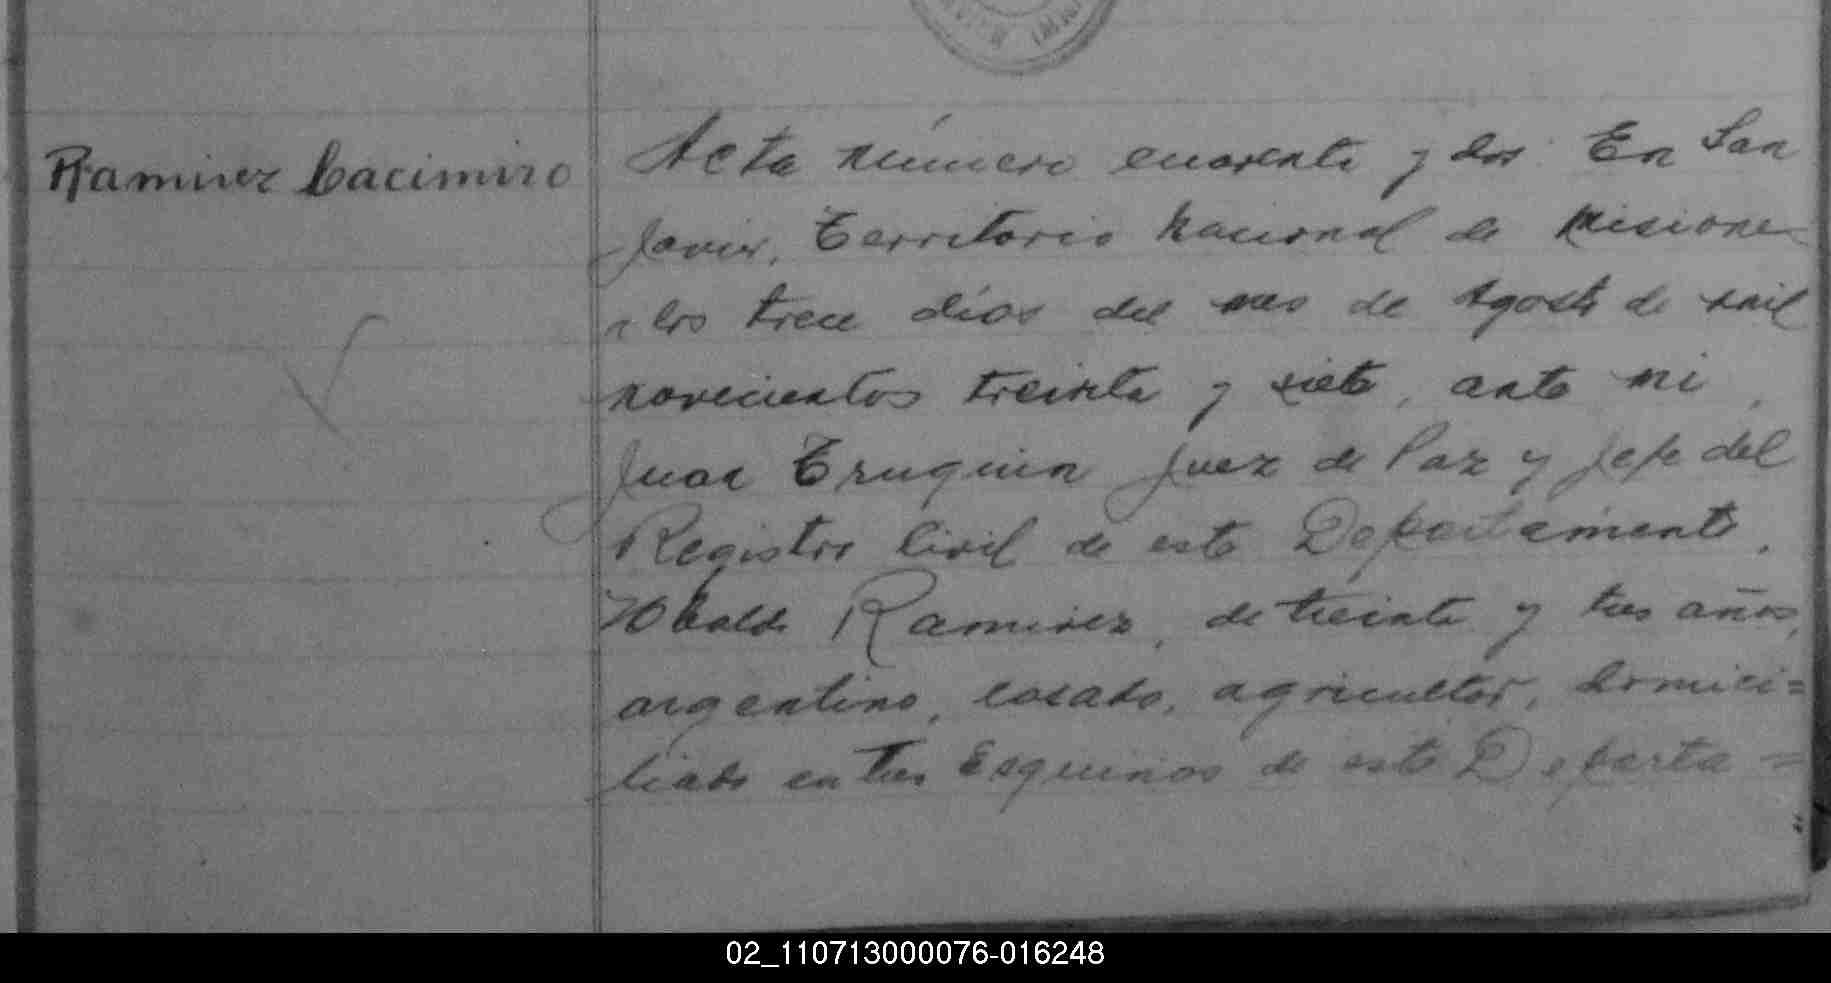 Ramirez Cacimiro
Acta número cuarenta y dos. En San
Javier, Territorio Nacional de Misiones
a los trece dias del mes de Agosto de mil
novecientos treinta y siete, ante mi,
Juan Truquin Juez de Paz y Jefe del
Registro Civil de este Departamento,
Ubaldo Ramirez, de treinta y tres años,
argentino, casado, agricultor, domici=
liado en Tres Esquinas de este Departa=
02_110713000076-016248